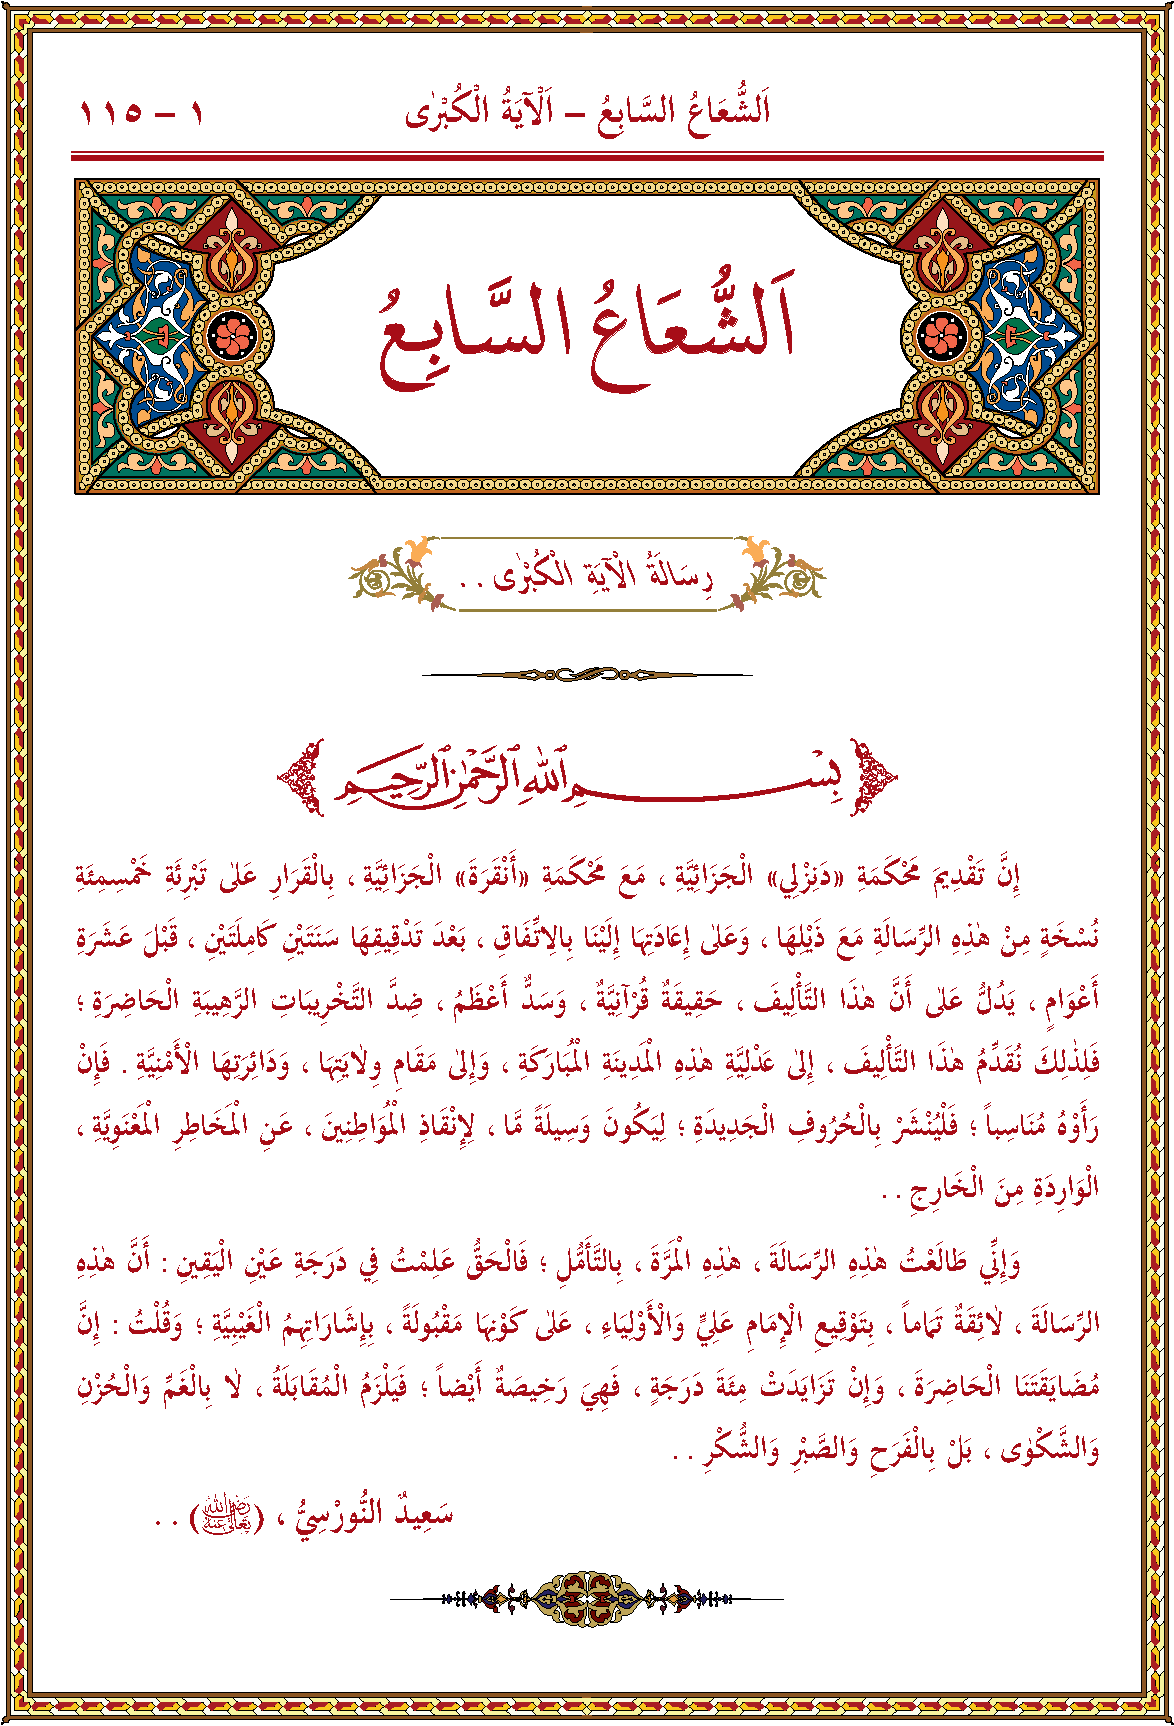 اَلشُّعَاعُ السَّابِعُ – اَلْآيَةُ الْكُبْرٰى
١ – ١١٥
اَلشُّعَاعُ السَّابِعُ
رِسَالَةُ الْآيَةِ الْكُبْرٰى . .
بِسْمِ اللهِ الرَّحْمٰنِ الرَّحِيمِ
إِنَّ تَقْدِيمَ مَحْكَمَةِ «دَنِزْلِي» الْجَزَائِيَّةِ ، مَعَ مَحْكَمَةِ «أَنْقَرَةَ» الْجَزَائِيَّةِ ، بِالْقَرَارِ عَلٰى تَبْرِئَةِ خَمْسِمِئَةِ
نُسْخَةٍ مِنْ هٰذِهِ الرِّسَالَةِ مَعَ ذَيْلِهَا ، وَعَلٰى إِعَادَتِهَا إِلَيْنَا بِالِاتِّفَاقِ ، بَعْدَ تَدْقِيقِهَا سَنَتَيْنِ كَامِلَتَيْنِ ، قَبْلَ عَشَرَةِ
أَعْوَامٍ ، يَدُلُّ عَلٰى أَنَّ هٰذَا التَّأْلِيفَ ، حَقِيقَةٌ قُرْآنِيَّةٌ ، وَسَدٌّ أَعْظَمُ ، ضِدَّ التَّخْرِيبَاتِ الرَّهِيبَةِ الْحَاضِرَةِ ؛
فَلِذٰلِكَ نُقَدِّمُ هٰذَا التَّأْلِيفَ ، إِلٰى عَدْلِيَّةِ هٰذِهِ الْمَدِينَةِ الْمُبَارَكَةِ ، وَإِلٰى مَقَامِ وِلَايَتِهَا ، وَدَائِرَتِهَا الْأَمْنِيَّةِ . فَإِنْ
رَأَوْهُ مُنَاسِباً ؛ فَلْيُنْشَرْ بِالْحُرُوفِ الْجَدِيدَةِ ؛ لِيَكُونَ وَسِيلَةً مَّا ، لِإِنْقَاذِ الْمُوَاطِنِينَ ، عَنِ الْمَخَاطِرِ الْمَعْنَوِيَّةِ ،
الْوَارِدَةِ مِنَ الْخَارِجِ . .
وَإِنِّي طَالَعْتُ هٰذِهِ الرِّسَالَةَ ، هٰذِهِ الْمَرَّةَ ، بِالتَّأَمُّلِ ؛ فَالْحَقُّ عَلِمْتُ فِي دَرَجَةِ عَيْنِ الْيَقِينِ : أَنَّ هٰذِهِ
الرِّسَالَةَ ، لَائِقَةٌ تَمَاماً ، بِتَوْقِيعِ الْإِمَامِ عَلِيٍّ وَالْأَوْلِيَاءِ ، عَلٰى كَوْنِهَا مَقْبُولَةً ، بِإِشَارَاتِهِمُ الْغَيْبِيَّةِ ؛ وَقُلْتُ : إِنَّ
مُضَايَقَتَنَا الْحَاضِرَةَ ، وَإِنْ تَزَايَدَتْ مِئَةَ دَرَجَةٍ ، فَهِيَ رَخِيصَةٌ أَيْضاً ؛ فَيَلْزَمُ الْمُقَابَلَةُ ، لَا بِالْغَمِّ وَالْحُزْنِ
وَالشَّكْوٰى ، بَلْ بِالْفَرَحِ وَالصَّبْرِ وَالشُّكْرِ . .
سَعِيدٌ النُّورْسِيُّ ، (رَضِيَ اللهُ تَعَالٰى عَنْهُ) . .